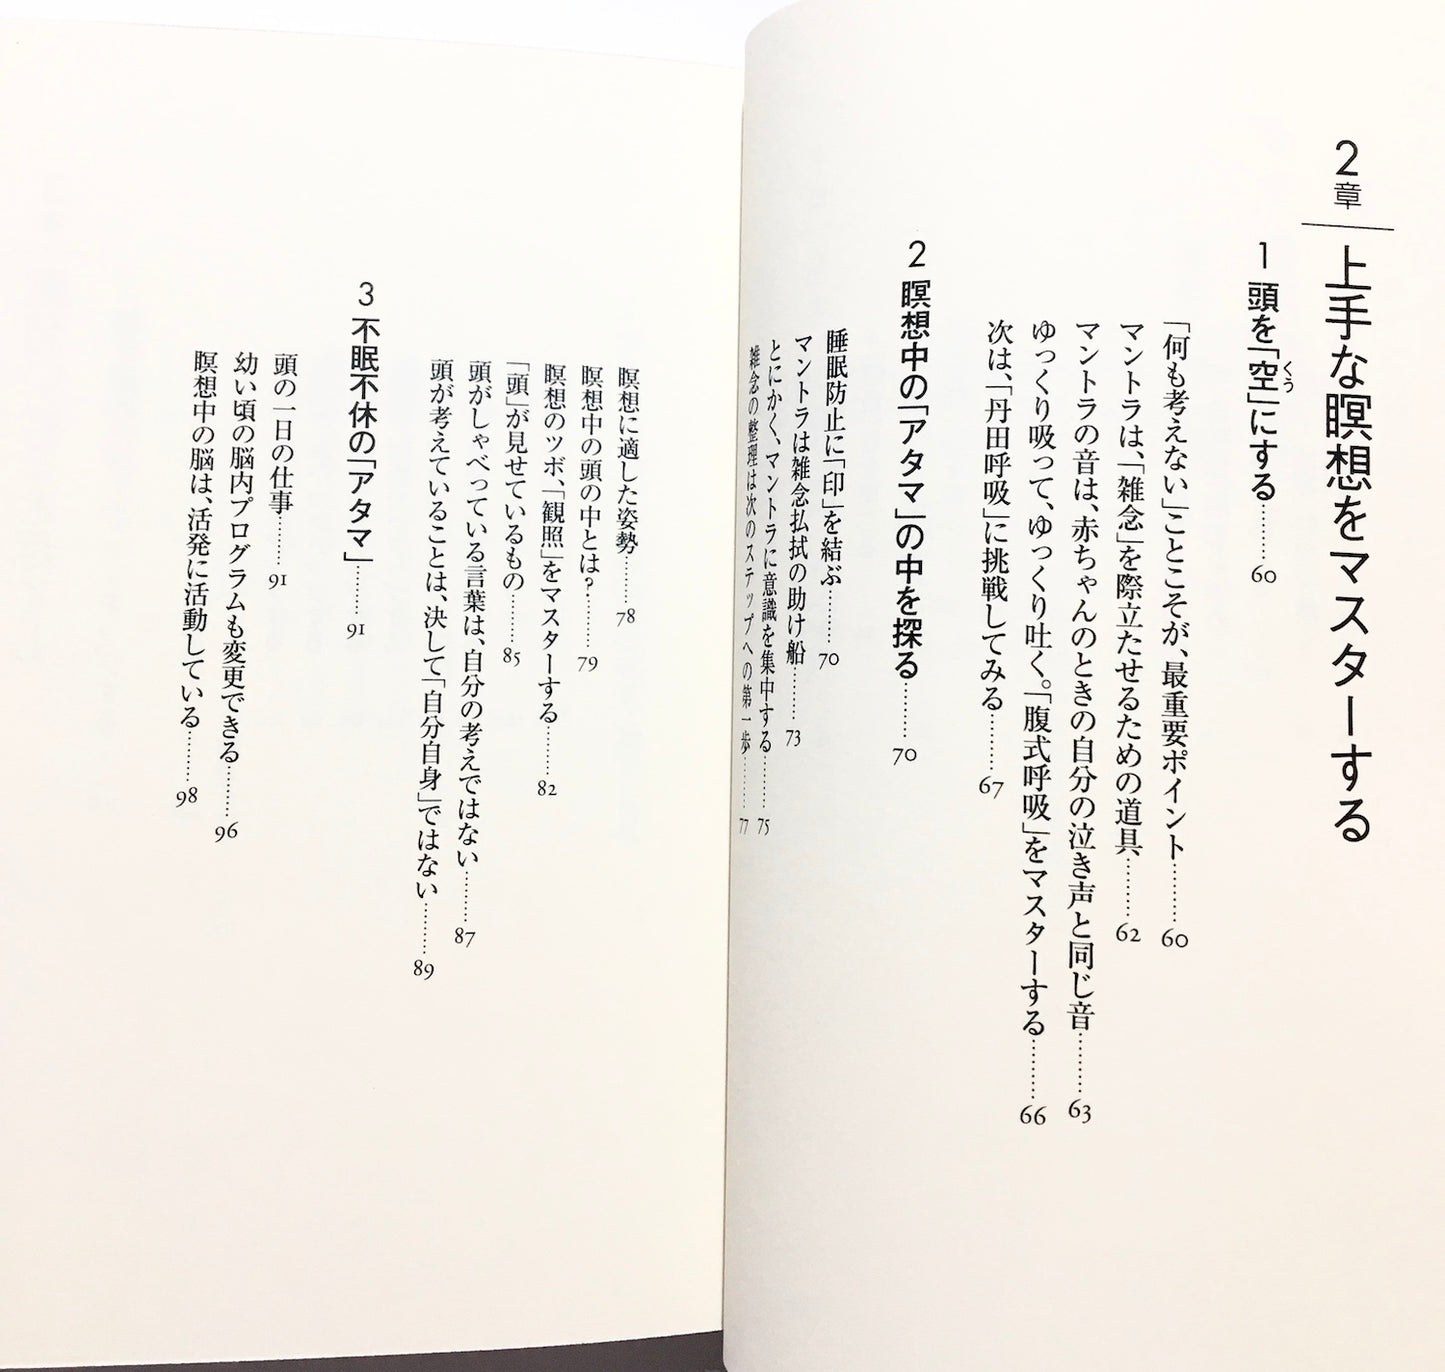 2章 上手な瞑想をマスターする
1 頭を「空」にする………60
くう
「何も考えない」ことこそが、最重要ポイント………60
マントラは、「雑念」を際立たせるための道具………62
マントラの音は、赤ちゃんのときの自分の泣き声と同じ音………63
ゆっくり吸って、ゆっくり吐く。「腹式呼吸」をマスターする………66
次は、「丹田呼吸」に挑戦してみる………67
2 瞑想中の「アタマ」の中を探る………70
睡眠防止に「印」を結ぶ………70
マントラは雑念払拭の助け船………73
とにかく、マントラに意識を集中する………75
雑念の整理は次のステップへの第一歩………77
瞑想に適した姿勢………78
瞑想中の頭の中とは?………79
瞑想のツボ、「観照」をマスターする………82
「頭」が見せているもの………85
頭がしゃべっている言葉は、自分の考えではない………87
頭が考えていることは、決して「自分自身」ではない………89
3 不眠不休の「アタマ」………91
頭の一日の仕事………91
幼い頃の脳内プログラムも変更できる………96
瞑想中の脳は、活発に活動している………98